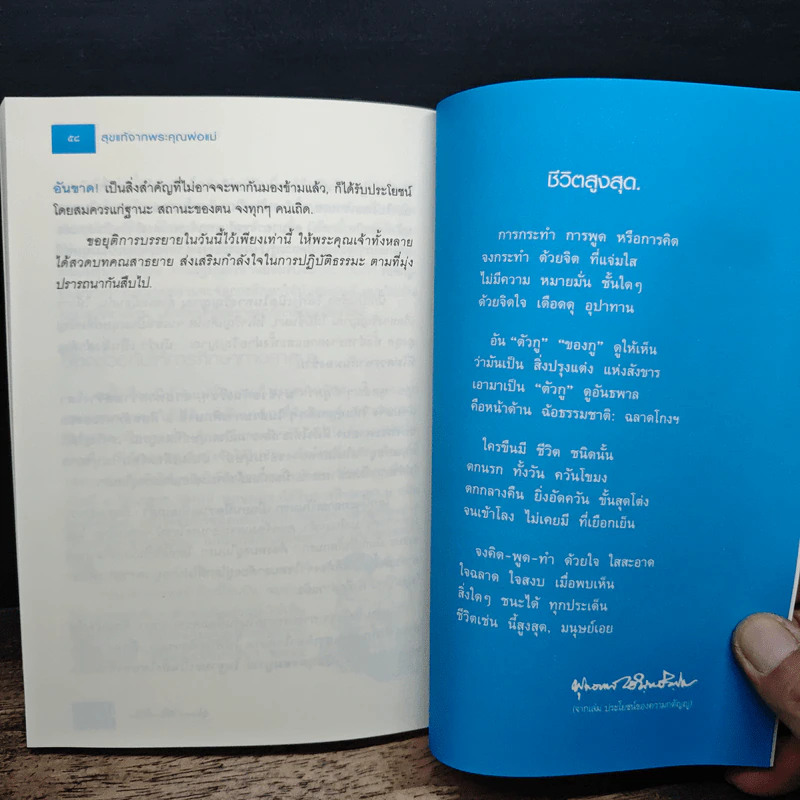 ๕๔ สุขแท้จากพระคุณพ่อแม่
อันขาด! เป็นสิ่งสำคัญที่ไม่อาจจะพากันมองข้ามแล้ว, ก็ได้รับประโยชน์
โดยสมควรแก่ฐานะ สถานะของตน จงทุกๆ คนเถิด.
ขอยุติการบรรยายในวันนี้ไว้เพียงเท่านี้ ให้พระคุณเจ้าทั้งหลาย
ได้สวดบทคณสาธยาย ส่งเสริมกำลังใจในการปฏิบัติธรรมะ ตามที่มุ่ง
ปรารถนากันสืบไป.
ชีวิตสูงสุด.
การกระทำ การพูด หรือการคิด
จงกระทำ ด้วยจิต ที่แจ่มใส
ไม่มีความ หมายมั่น ชั้นใดๆ
ด้วยจิตใจ เดือดดุ อุปาทาน
อัน “ตัวกู” “ของกู” ดูให้เห็น
ว่ามันเป็น สิ่งปรุงแต่ง แห่งสังขาร
เอามาเป็น “ตัวกู” ดูอันธพาล
คือหน้าด้าน ฉ้อธรรมชาติ: ฉลาดโกงฯ
ใครขืนมี ชีวิต ชนิดนั้น
ตกนรก ทั้งวัน ควันโขมง
ตกกลางคืน ยิ่งอัดควัน ขั้นสุดโต่ง
จนเข้าโลง ไม่เคยมี ที่เยือกเย็น
จงคิด-พูด-ทำ ด้วยใจ ใสสะอาด
ใจฉลาด ใจสงบ เมื่อพบเห็น
สิ่งใดๆ ชนะได้ ทุกประเด็น
ชีวิตเช่น นี้สูงสุด, มนุษย์เอย
พุทธทาส อินฺทปญฺโญ
(จากเล่ม ประโยชน์ของความกตัญญู)